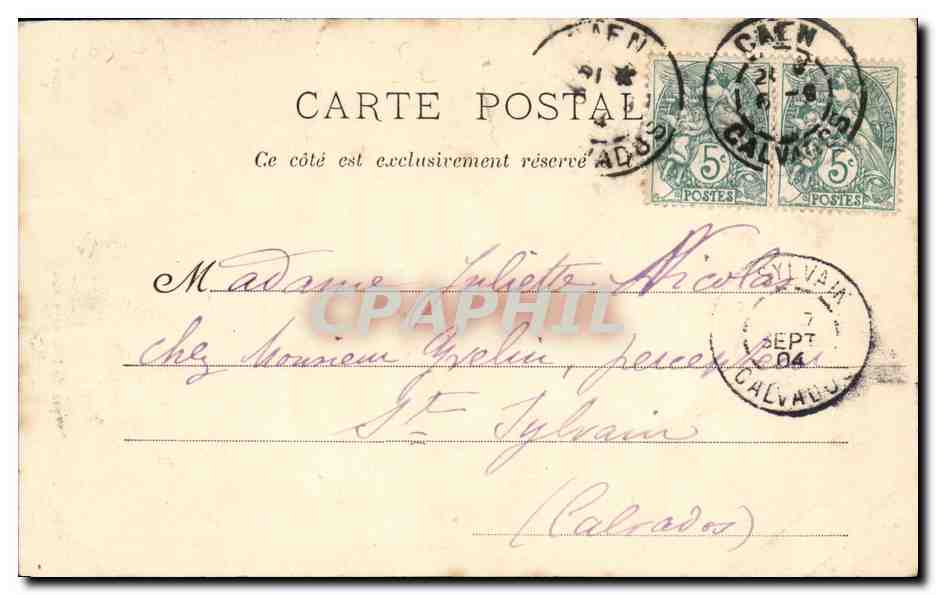 CAEN
CAEN
CALVADOS
CARTE POSTAL
Ce côté est exclusivement réservé
5c 5c
POSTES POSTES
Madame Juliette Nicolas
chez Monsieur Gyvelin, percepteur
St Sylvain
(Calvados)
SYLVAIN
7
SEPT
04
CALVADOS
CPAPHIL